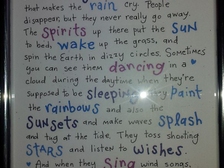 that makes the rain cry. People
disappear, but they never really go away.
The Spirits up there put the SUN
to bed, wake up the grass, and
spin the Earth in dizzy circles. Sometimes
you can see them dancing in a
cloud during the daytime when they're
supposed to be sleeping. They Paint
the rainbows and also the
SUNsets and make waves splash
and tug at the tide. They toss shooting
STARS and listen to wishes.
And when they Sing wind songs,